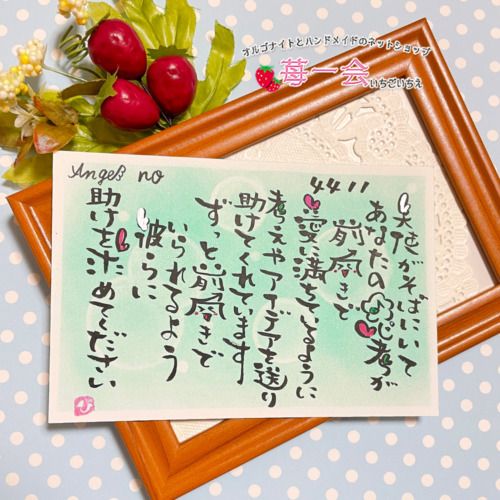 オルゴナイトとハンドメイドのネットショップ
苺一会いちごいちえ
Angel no
4411
天使がそばにいて
あなたの思考が
前向きで
愛に満ちているように
考えやアイデアを送り
助けてくれています
ずっと前向きで
いられるよう
彼らに
助けを求めてください